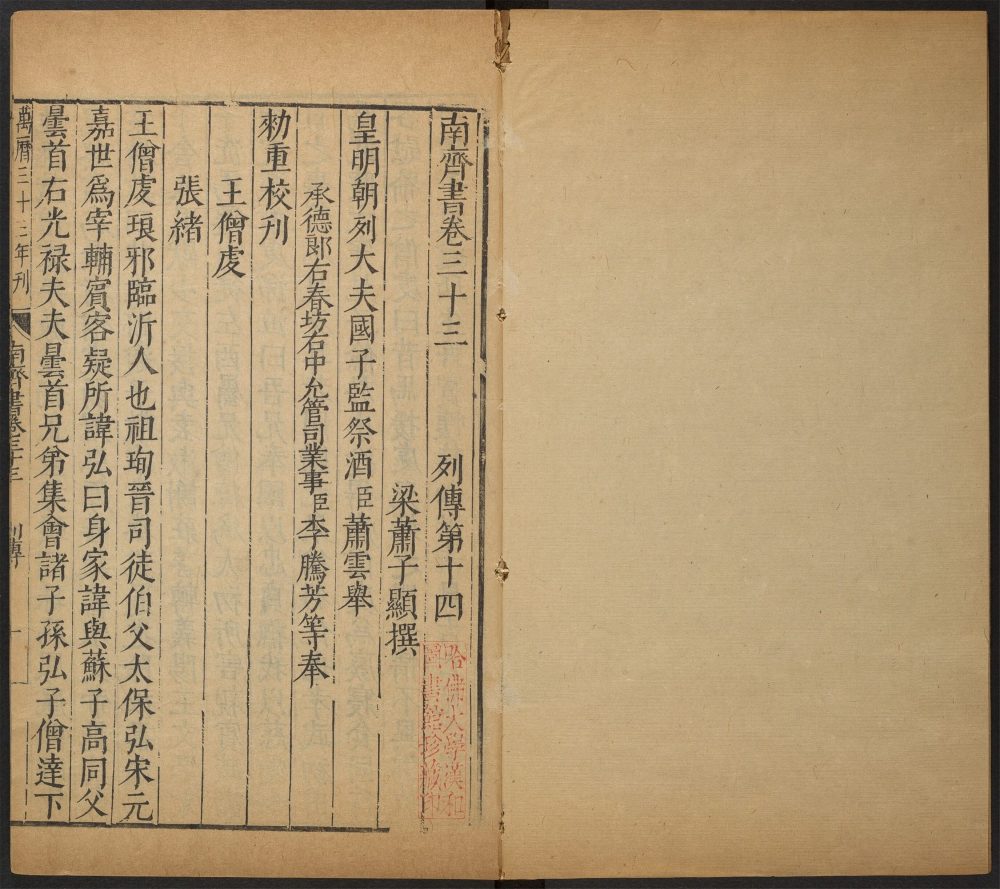 南齊書卷三十三　列傳第十四
梁蕭子顯撰
皇明朝列大夫國子監祭酒臣蕭雲舉
承德郎右春坊右中允管司業事臣李騰芳等奉
勑重校刊
王僧虔
張緒
王僧虔琅邪臨沂人也祖珣晉司徒伯父太保弘宋元
嘉世爲宰輔賓客疑所諱弘曰身家諱與蘇子高同父
曇首右光禄大夫曇首兄弟集會諸子孫弘子僧達下
萬曆三十三年刊
南齊書卷三十三　列傳　一
哈佛大學漢和
圖書館珍藏印